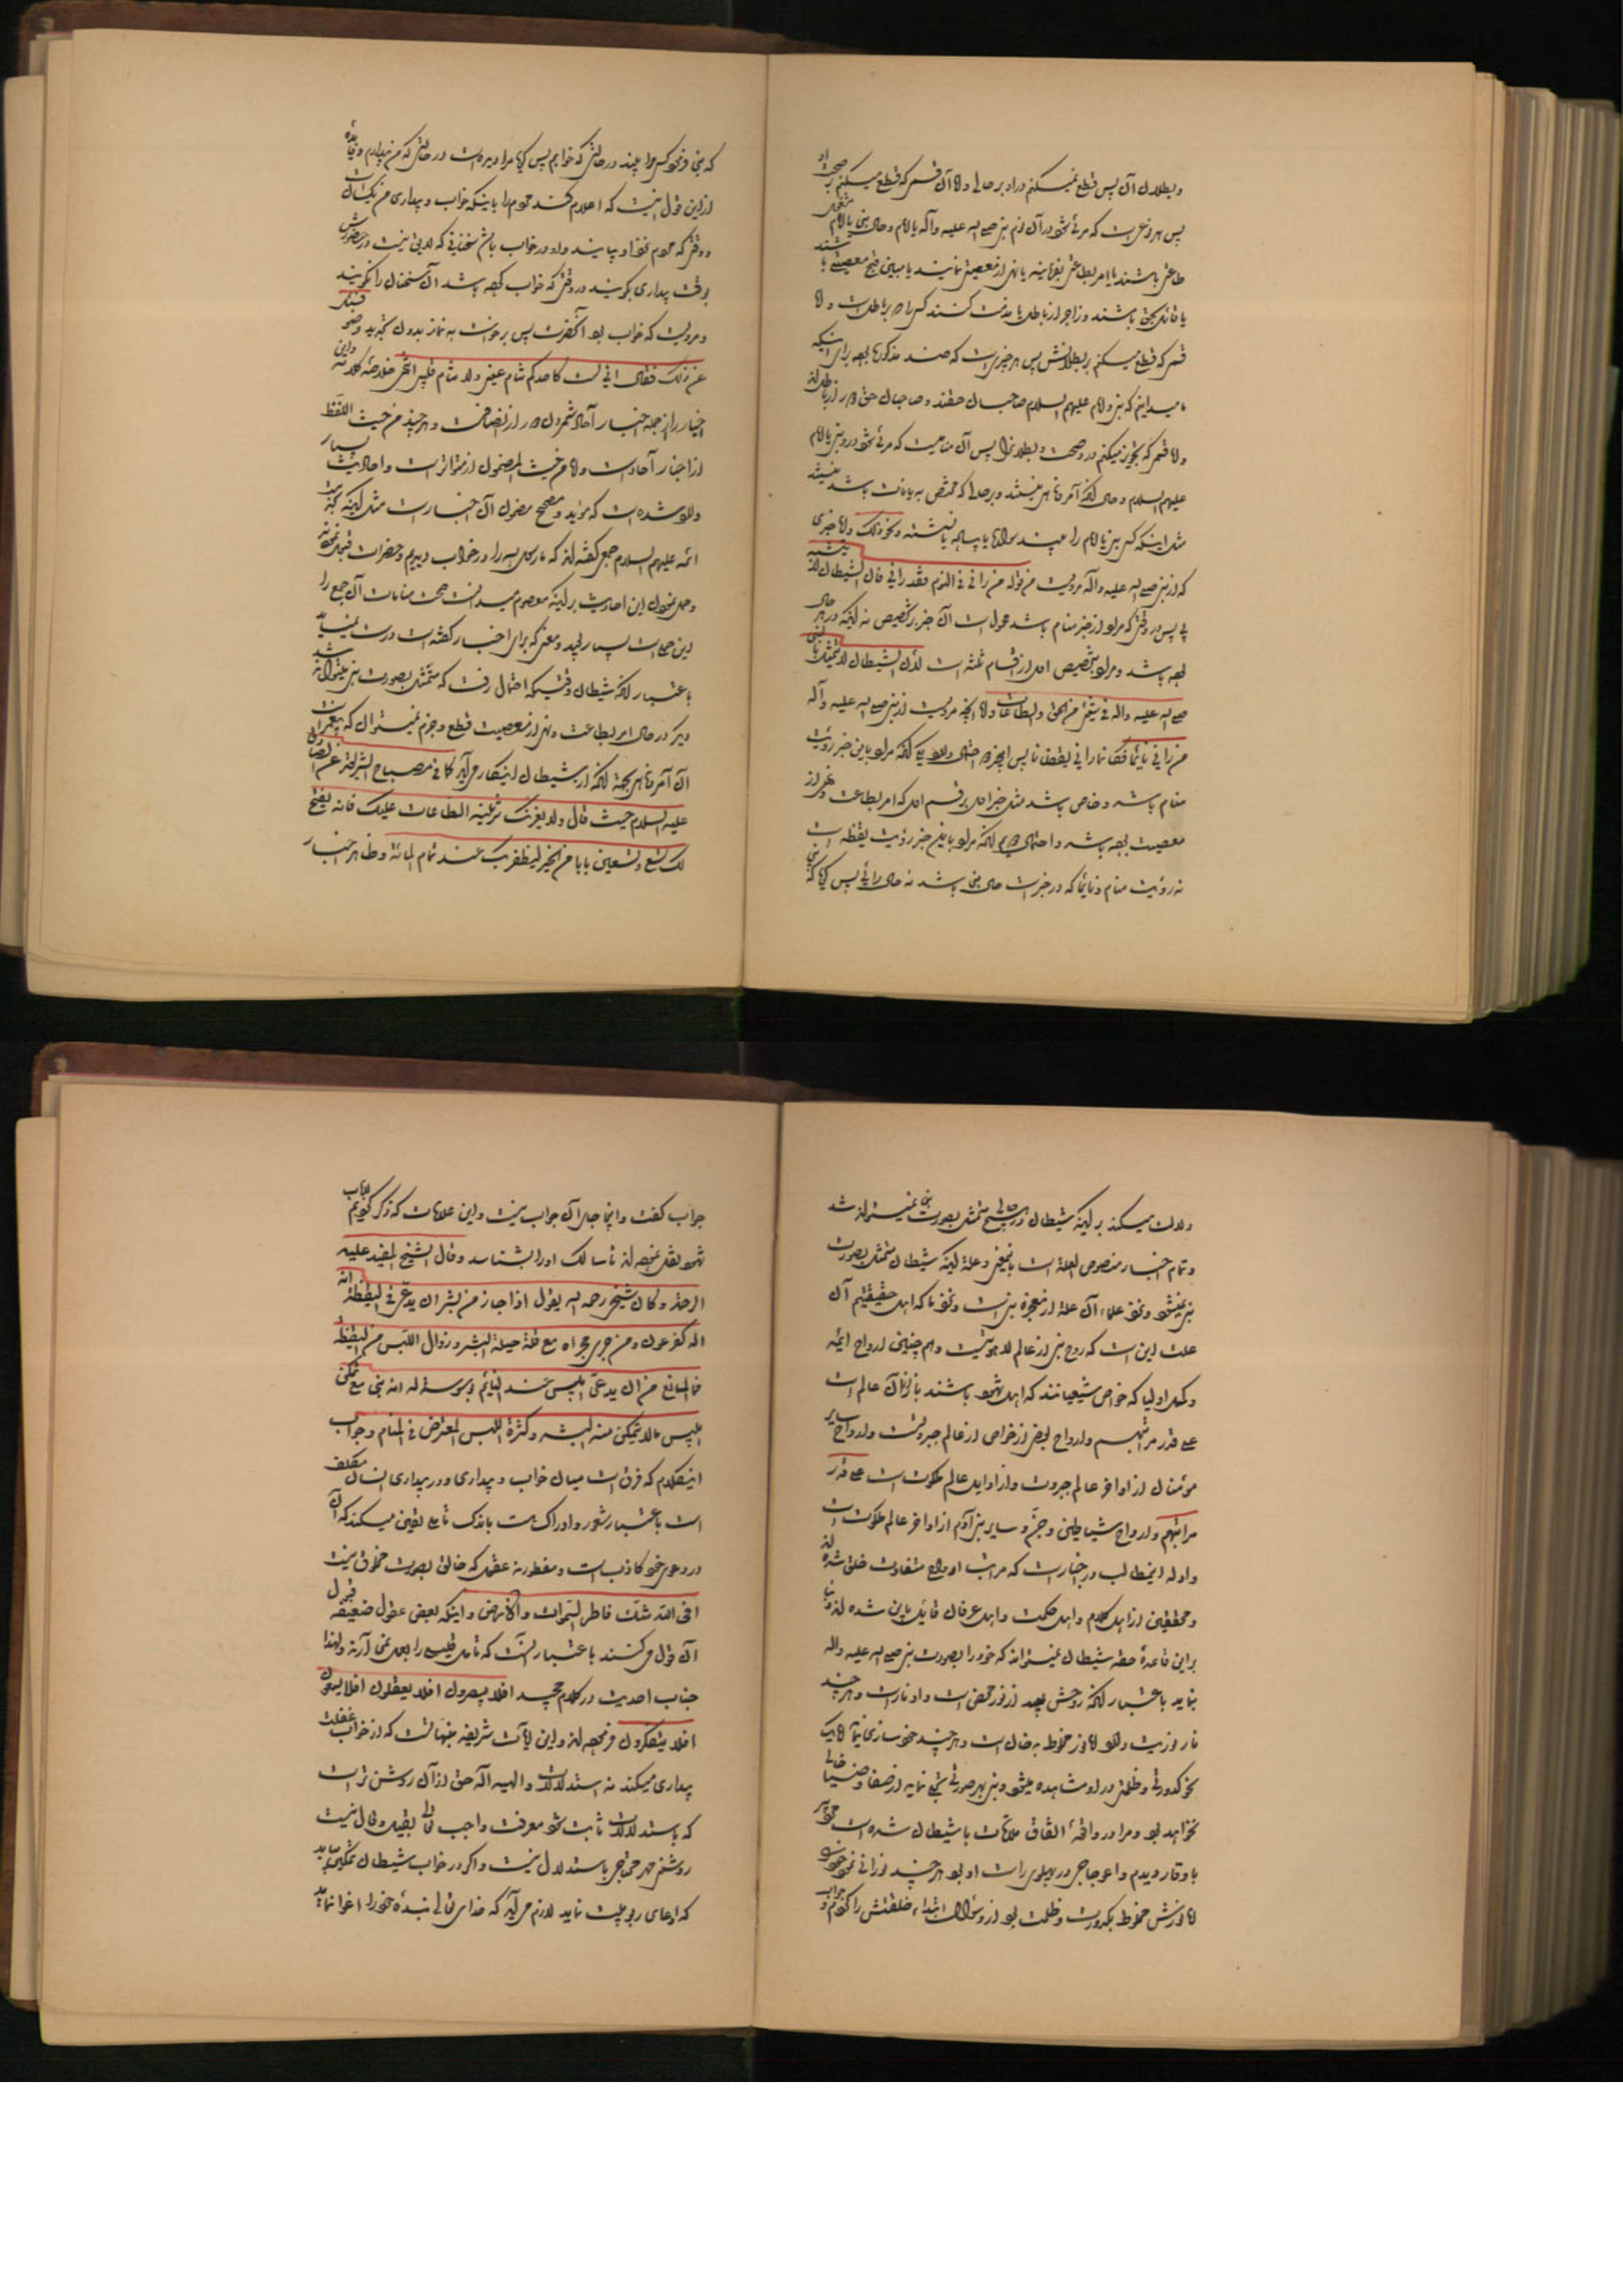 و بطلان آن پس قطع نمیکنم در او بر حالی و اما آن قسم که قطع میکنم بر صحت او
پس هر نوعی است که مرئی شود در آن نوم نبی صلی الله علیه وآله یا امام و حال نبی یا امام
طاعتی باشند یا امر بطاعتی بفرمایند یا نهی از معصیتی نمایند یا مبین قبح معصیتی باشند
یا قائل بحق باشند و زاجر از باطل یا مذمت کنند کسی را که بر باطل است و اما
قسمی که قطع میکنم بر بطلانش پس هر چیزی است که ضد مذکورها بود برای اینکه
ما میدانیم که نبی و امام علیهم السلام صاحبان حقند و صاحبان حق از باطل
و اما قسمی که تجویز میکنم در او صحت و بطلان را پس آن منامیست که مرئی شود در او نبی یا امام
علیهم السلام و حال آنکه آمر و ناهی نیستند و بر حالی که مختص به دیانات باشد نیستند
مثل اینکه کسی نبی یا امام را میبیند سواره یا پیاده یا نشسته و نحو ذلک و اما خبری
که از نبی صلی الله علیه وآله مرویست من قوله من رآنی فی النوم فقد رآنی فان الشیطان لا یتشبه
بی پس در وقتی که مراد از خبر منام باشد محمول است آن خبر بر تخصیص نه اینکه در هر حال
بوده باشد و مراد بتخصیص اول از اقسام ثلثه است لأن الشیطان لا یتمثل بالنبی
صلی الله علیه وآله فی شیء من الحق والطاعات و اما آنچه مرویست از نبی صلی الله علیه وآله
من رآنی نائما فکانما رآنی یقظانا پس در آنجه احتمال دارد یکی آنکه مراد باین خبر رؤیت
منام باشد و خاص باشد مثل خبر اول بر قسم اول که امر بطاعت و نهی از
معصیت بوده باشد و احتمال دوم آنکه مراد باین خبر رؤیت یقظه است
نه رؤیت منام و نائما که در خبر است حال نبی باشد نه حال رائی پس گویا که نبی
که نبی فرمود کسی مرا بیند در حالتی که خوابم پس گویا مرا دیده است در حالتی که من بیدارم و فایده
از این قول اینست که اعلام کند مردم را باینکه خواب و بیداری من یکسانست
و وقتی که مردم نزد او بیایند و او در خواب باشد سخنانی که لایق نیست در حضورش
بوقت بیداری بگویند در وقتی که خواب بوده باشد آن سخنان را نگویند
و مرویست که خواب بود آنحضرت پس برخواست به نماز بدون تجدید وضو فسئل
عن ذلک فقال انی لست کاحدکم تنام عینی ولا ینام قلبی انتهی خلاصة کلامه و این
اخبار را از جمله اخبار آحاد شمردن دور از انصافست و هر چند من حیث اللفظ
از اخبار آحاد است و اما من حیث المضمون از متواترات و احادیث بسیار
وارد شده است که مؤید و مصحح مضمون آن اخبار است مثل اینکه نزد
ائمه علیهم السلام جمعی گفته اند که ما رسول الله را در خواب دیدیم و حضرات قبول نموده
و حمل نمودن این احادیث بر اینکه معصوم میدانست صحت منامات آن جمع را
این حملیست بسیار بعید و معنی که برای اخبار گفته است درست نمیباشد
باعتبار آنکه شیطان وقتیکه احتمال رفت که متمثل بصورت نبی میتواند شد
دیگر در حال امر بطاعت و نهی از معصیت قطع و جزم نمیتوان کرد که پیغمبر است
آن آمر و ناهی بجهة آنکه از شیطان اینکار می آید کما فی مصباح الشریعة عن الصادق
علیه السلام حیث قال ولا یغرنک تزیینه الطاعات علیک فانه یفتح
لک تسع وتسعین بابا من الخیر لیظفر بک عند تمام المائة و ظاهر اخبار
دلالت میکند بر اینکه شیطان در هیچ حالی متمثل بصورت نبی نمیتواند شد
و تمام اخبار منصوص العلة است باینمعنی و علة اینکه شیطان متمثل بصورت
نبی نمیشود و نزد علماء آن علة از معجزه نبی است و نزد ما که اهل حقیقتیم آن
علت این است که روح نبی از عالم لاهوتیست و هم چنین ارواح ائمه
و کمل اولیا که خواص شیعیانند که اهل شهود باشند باز از آن عالم است
علی قدر مراتبهم و ارواح بعضی از خواص از عالم جبروتست و ارواح سایر
مؤمنان از اواخر عالم جبروت و از اوایل عالم ملکوت است علی قدر
مراتبهم و ارواح شیاطین و جن و سایر بنی آدم از اواخر عالم ملکوت است
و ادله اینمطالب در اخبار است که مراتب ارواح متفاوت خلق شده اند
و محققین از اهل کلام و اهل حکمت و اهل عرفان قایل باین شده اند و بنا
بر این قاعدهٔ حقه شیطان نمیتواند که خود را بصورت نبی صلی الله علیه وآله
بنماید باعتبار آنکه روحش بعید از نور محض است و او نار است و هر چند
نار نوریت دارد اما نور مخلوط به دخان است و هر چند خود سازی نماید اما یک
نحو کدورتی و ظلمتی در او مشاهده میشود و نبی بهر صورتی تجلی نماید از صفا و ضیا خالی
نخواهد بود و مرا در واقعهٔ اتفاق ملاقات با شیطان شده است
با وقار دیدم و اعوجاجی در پهلوی راست او بود هر چند نورانی نمود خود را
اما نورش مخلوط بکدورت و ظلمت بود از او سؤالات ابتداء خلقتش را کردم و جواب
جواب گفت و اینجا جای آن جواب نیست و این علامات که ذکر کردیم
شهود نقل نموده اند تا سالک او را بشناسد وقال الشیخ المفید علیه
الرحمة وکان شیخی رحمه الله یقول اذا جاز من بشر ان یدعی فی الیقظة انه
اله کفرعون ومن جری مجراه مع قلة حیلة البشر وزوال اللبس من الیقظة
فما المانع من ان یدعی ابلیس عند النائم بوسوسة له انه نبی مع تمکن
ابلیس مما لا یتمکن منه البشر وکثرة اللبس المعترض فی المنام و جواب
اینکلام که فرق است میان خواب و بیداری و در بیداری انسان مکلف
است باعتبار شعور و ادراک هست باندک تأملی یقین میکند که آن
در دعوی خود کاذب است و مفطور به عقول که خالق بصورت مخلوق نیست
افی الله شک فاطر السموات والارض و اینکه بعض عقول ضعیفه قبول
آن قول می کنند باعتبار آنست که تأمل قلیلی را بعمل نمی آرند و لهذا
جناب احدیت در کلام مجید افلا یبصرون افلا یعقلون افلا یسمعون
افلا یتفکرون فرموده اند و این آیات شریفه منبهاتست که از خواب غفلت
بیداری میکند نه استدلالات و الهیه اله حق از آن روشن تر است
که باستدلالات ثابت شود معرفت واجب تعالی بقیل و قال نیست
روشنی مهر محتاج باستدلال نیست و اگر در خواب شیطان تمکین بیابد
که ادعای ربوبیت نماید لازم می آید که خدای تعالی بندهٔ خود را اغوا نماید